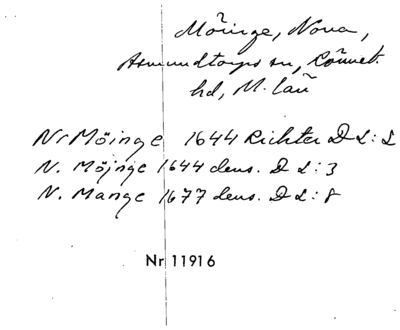 Möinge, Nova,
Asmundtorps sn, Rönneb.
hd, M. län
Nr Möinge 1644 Richter D 2:2
N. Möjnge 1644 dens. D 2:3
N. Mange 1677 dens. D 2:8
Nr 11916